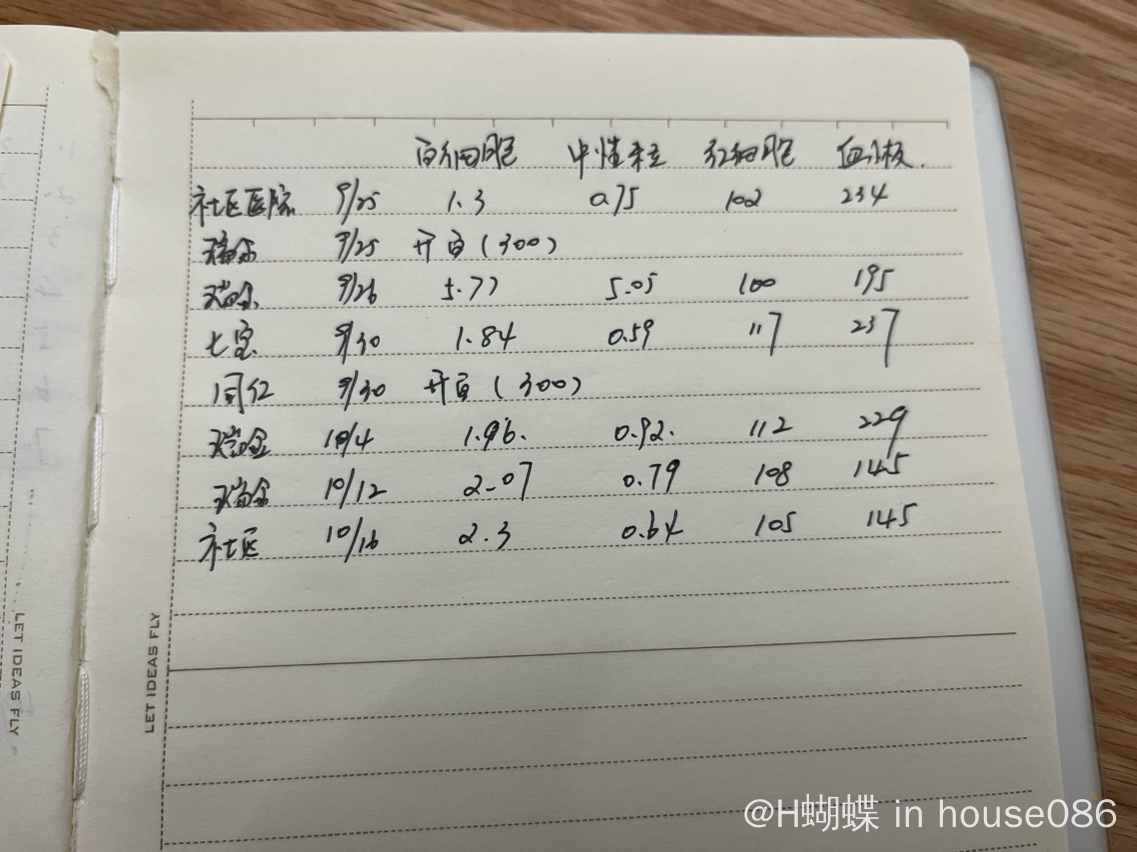 白细胞 中性粒 红细胞 血小板.
社区医院 9/25 1.3 0.75 102 234
瑞金 9/25 升白(300)
瑞金 9/26 5.77 5.05 100 195
七宝 9/30 1.84 0.59 117 237
同仁 9/30 升白(300)
瑞金 10/4 1.96. 0.92. 112 229
瑞金 10/12 2.07 0.79 108 145
社区 10/16 2.3 0.64 105 145
LET IDEAS FLY
LET IDEAS FLY
@H蝴蝶 in house086